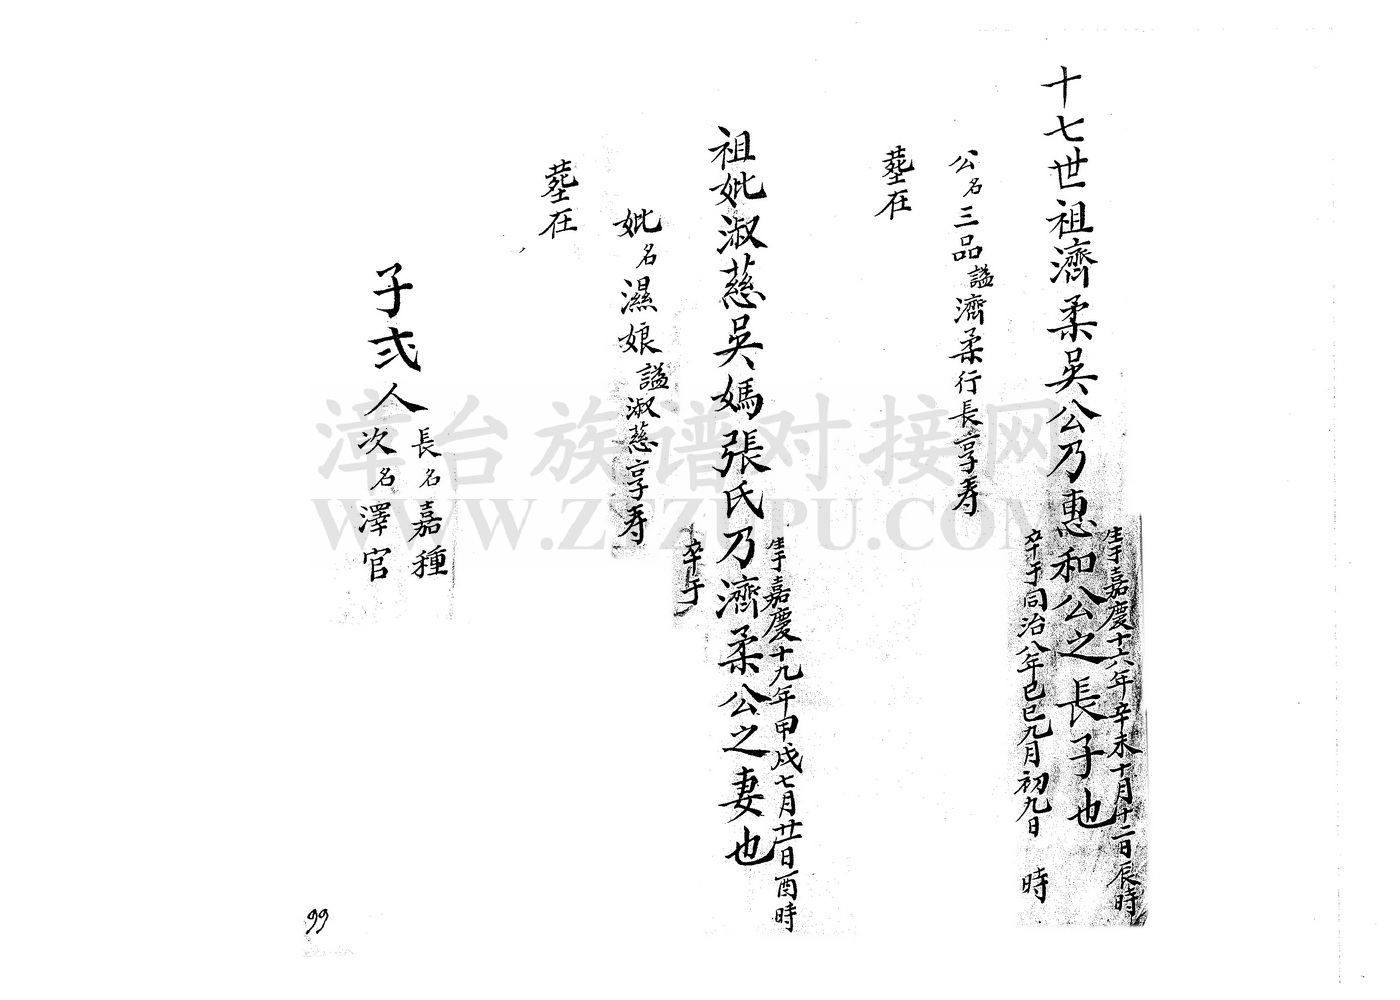 十七世祖濟柔吳公乃惠和公之長子也
生于嘉慶十六年辛未十月十二日辰時
卒于同治八年己巳九月初九日 時
公名三品謚濟柔行長享寿
塟在
祖妣淑慈吳媽張氏乃濟柔公之妻也
生于嘉慶十九年甲戌七月廿日酉時
卒于
妣名濕娘謚淑慈享寿
塟在
子弍人
長名嘉種
次名澤官
99
漳台族谱对接网
WWW.ZTZUPU.COM